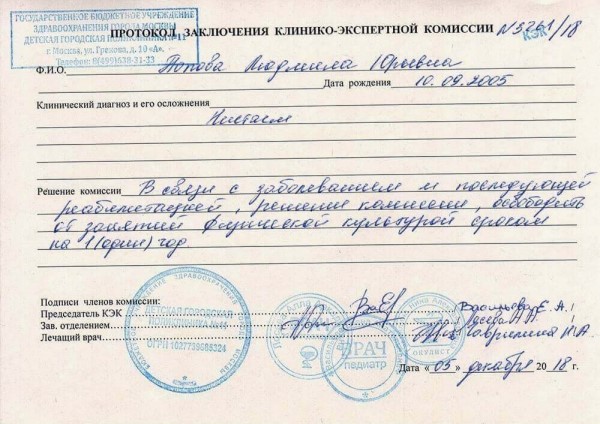 ГОСУДАРСТВЕННОЕ БЮДЖЕТНОЕ УЧРЕЖДЕНИЕ
ЗДРАВООХРАНЕНИЯ ГОРОДА МОСКВЫ
ДЕТСКАЯ ГОРОДСКАЯ
г. Москва, ул. Грекова, д. 10 «А».
Телефон: 8(499)638-31-33
ПРОТОКОЛ ЗАКЛЮЧЕНИЯ КЛИНИКО-ЭКСПЕРТНОЙ КОМИССИИ N3261/18
КЭК
Ф.И.О. Попова Людмила Юрьевна
Дата рождения 10.09.2005
Клинический диагноз и его осложнения
Нистагм
Решение комиссии В связи с заболеванием и последующей
реабилитацией, решение комиссии, освободить
от занятий физической культурой сроком
на 1(один) год
Подписи членов комиссии:
Председатель КЭК Васильева Е.А.
Зав. отделением
Лечащий врач Гаврилина
ДЕТСКАЯ ГОРОДСКАЯ
ОГРН 1027739588324
ВРАЧ
педиатр
окулист
Дата «05» декабря 2018 г.